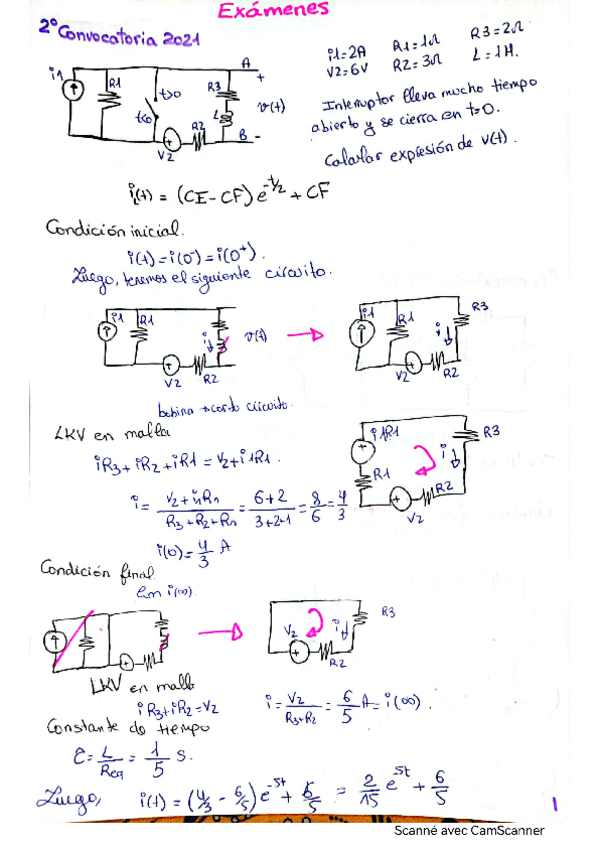 Exámenes
2º Convocatoria 2021
i1=2A R1=1Ω R3=2Ω
V2=6V R2=3Ω L=1H.
Interruptor lleva mucho tiempo
abierto y se cierra en t=0.
Calcular expresión de v(t).
i1
R1
t>0
t<0
R3
L
A
+
v(t)
R2
B -
V2
i(t) = (CI-CF) e^-t/τ + CF
Condición inicial.
i(t)=i(0⁻)=i(0⁺).
Luego, tenemos el siguiente circuito.
i1
R1
i
v(t)
V2
R2
i1
R1
i
R3
V2
R2
bobina → corto circuito.
LKV en malla
iR3+iR2+iR1 = V2+i1R1.
i= V2+i1R1 / R3+R2+R1 = 6+2 / 3+2+1 = 8/6 = 4/3
i(0)= 4/3 A
i1R1
R1
i
R3
R2
V2
Condición final.
En i(∞).
V2
i
R3
R2
LKV en malla
iR3+iR2=V2
i= V2 / R3+R2 = 6/5 A = i(∞).
Constante de tiempo
τ= L/Req = 1/5 s.
Luego, i(t) = (4/3 - 6/5) e^-5t + 6/5 = 2/15 e^-5t + 6/5
1
Scanné avec CamScanner